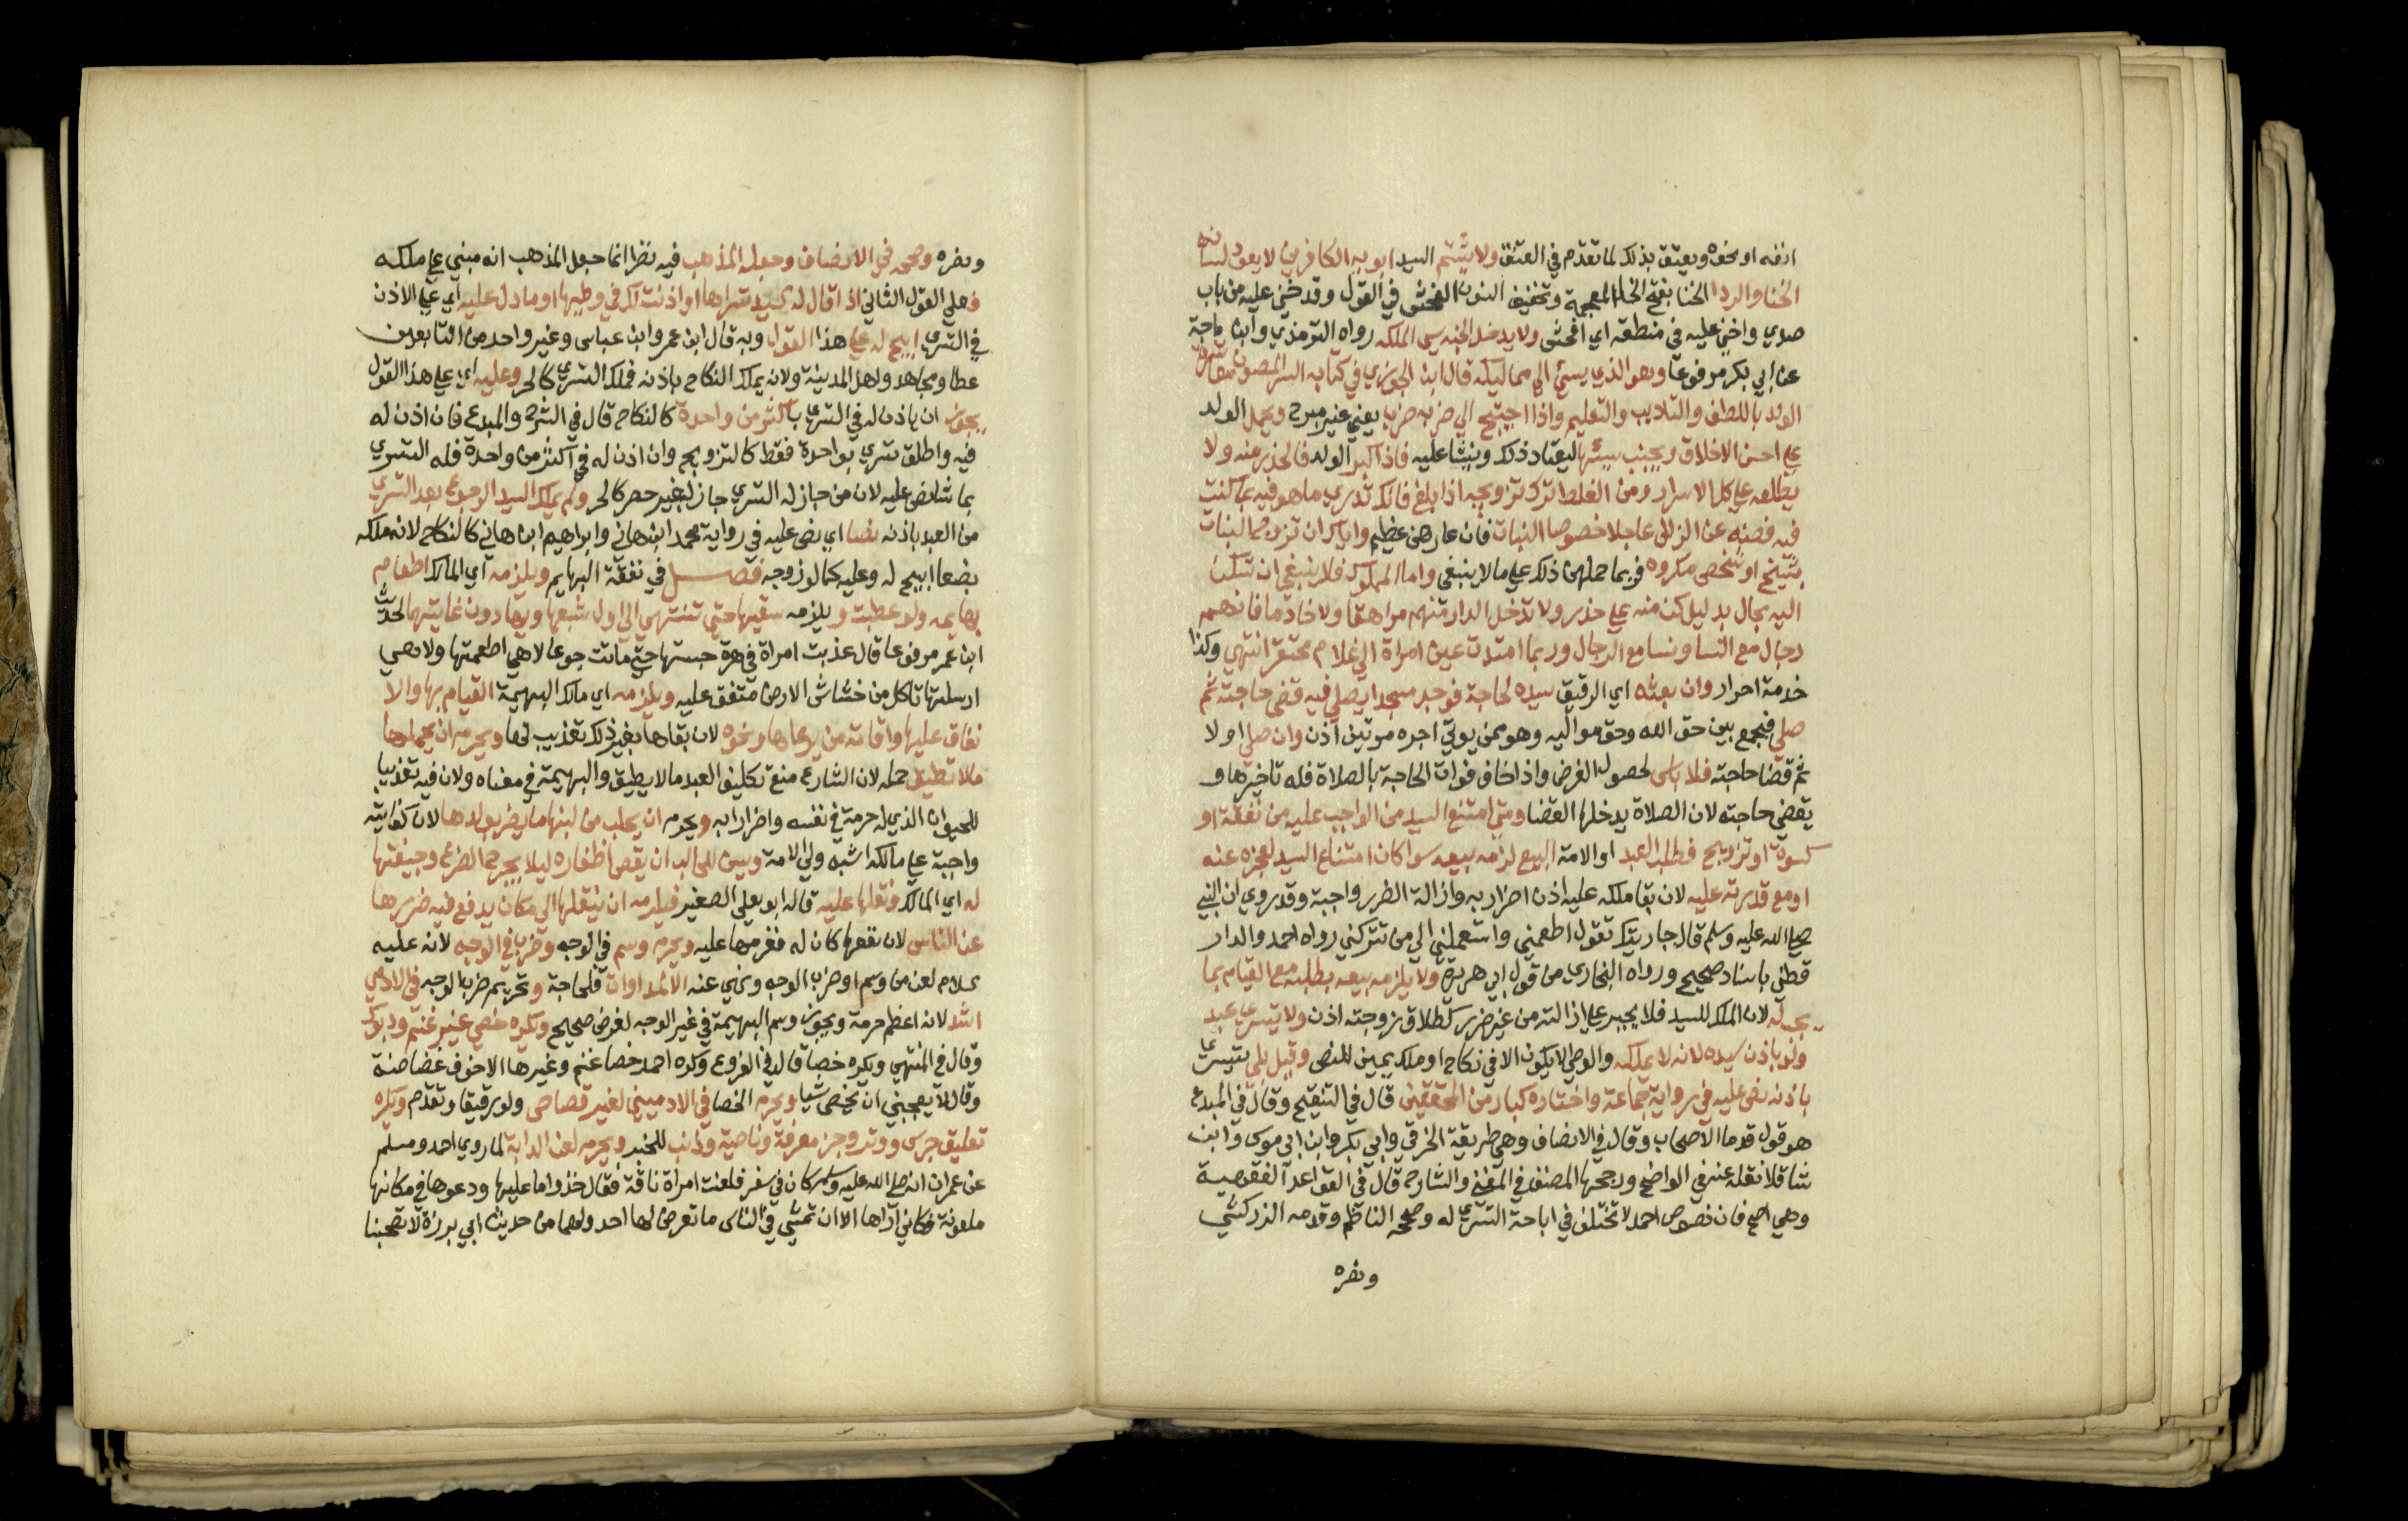 انفه او نحوه ويعتق بذلك لما تقدم في العتق ولا يشتم السيد ابويه الكافرين لا يعود لسانه
الخنا والردا الخنا بفتح الخا المعجمة وتخفيف النون الفحش في القول وقد خني عليه من باب
صدي واخني عليه في منطقه اي افحش ولا يدخل الجنة سيئ الملكه رواه الترمذي وابن ماجة
عن ابي بكر مرفوعا وهو الذي يسئ الي مماليكه قال ابن الجوزي في كتابه السر المصون معاشرة
الولد باللطف والتاديب والتعليم واذا احتيج الي ضربه ضرب يعني غير مبرح ويحمل الولد
علي احسن الاخلاق ويجنب سيئها ليعتاد ذلك وينشا عليه فاذا كبر الولد فالحذر منه ولا
يطلعه علي كل الاسرار ومن الغلط ترك تزويجه اذا بلغ فانك تدري ما هو فيه بما كنت
فيه فصنه عن الزلل عاجلا خصوصا البنات فان عارهن عظيم واياك ان تزوج البنات
بشيخ او شخص مكروه فربما حملهن ذلك علي ما لا ينبغي واما المملوك فلا ينبغي ان تسكن
اليه بحال بل ليكن منه علي حذر ولا تدخل الدار منهم مراهقا ولا خادما فانهم
رجال مع النسا ونسا مع الرجال وربما امتدت عين امراة الي غلام محتقر انتهي وكذا
خدمة احرار وان بعثه اي الرقيق سيده لحاجة فوجد مسجدا يصلي فيه قضي حاجته ثم
صلي فيجمع بين حق الله وحق مواليه وهو ممن يوتي اجره مرتين اذن وان صلي اولا
ثم قضا حاجته فلا باس لحصول الغرض واذا خاف فوات الحاجة بالصلاة فله تاخيرها و
يقضي حاجته لان الصلاة يدخلها القضا ومتي امتنع السيد من الواجب عليه من نفقة او
كسوة او تزويج فطلب العبد او الامة البيع لزمه بيعه سوا كان امتناع السيد لعجزه عنه
او مع قدرته عليه لان بقا ملكه عليه اذن اضرار به وازالة الضرر واجبة وقد روي ان النبي
صلي الله عليه وسلم قال جاريتك تقول اطعمني واستعملني الي من تتركني رواه احمد والدار
قطني باسناد صحيح ورواه البخاري من قول ابي هريرة ولا يلزمه بيعه بطلبه مع القيام بما
يجب له لان الملك للسيد فلا يجبر علي ازالته من غير ضرر كطلاق زوجته اذن ولا يتسري عبد
ولو باذن سيده لانه لا يملكه والوطي لا يكون الا في نكاح او ملك يمين للنص وقيل بلي يتسري
باذنه نص عليه في رواية جماعة واختاره كبار من المحققين قال في التنقيح وقال في المبدع
هو قول قدما الاصحاب وقال في الانصاف وهي طريقة الخرقي وابي بكر وابن ابي موسي وابن
شاقلا نقله عنه في الواضح ورجحها المصنف في المغني والشارح قال في القواعد الفقهية
وهي اصح فان نصوص احمد لا تختلف في اباحة التسري له وصححه الناظم وقدمه الزركشي
ونصره
ونصره وصححه في الانصاف وجعله المذهب فيه نظر انما جعل المذهب انه مبني علي ملكه
فعلي القول الثاني اذا قال له سيده تسراها او اذنت لك في وطيها او ما دل عليه اي علي الاذن
في التسري ابيح له علي هذا القول وبه قال ابن عمر وابن عباس وغير واحد من التابعين
عطا ومجاهد واهل المدينة ولانه يملك النكاح باذنه فملك التسري كالحر وعليه اي علي هذا القول
يجوز ان ياذن له في التسري باكثر من واحدة كالنكاح قال في الشرح والمبدع فان اذن له
فيه واطلق تسري بواحدة فقط كالتزويج وان اذن له في اكثر من واحدة فله التسري
بما شا نص عليه لان من جاز له التسري جاز لغير حصر كالحر ولم يملك السيد الرجوع بعد التسري
من العبد باذنه نصا اي نص عليه في رواية محمد ابن هاني وابراهيم ابن هاني كالنكاح لانه ملكه
بضعا ابيح له وعليه كما لو زوجه فصل في نفقة البهايم ويلزمه اي المالك اطعام
بهايمه ولو عطبت ويلزمه سقيها حتي تنتهي الي اول شبعها وريها دون غايتهما لحديث
ابن عمر مرفوعا قال عذبت امراة في هرة حبستها حتي ماتت جوعا لا هي اطعمتها ولا هي
ارسلتها تاكل من خشاش الارض متفق عليه ويلزمه اي مالك البهيمة القيام بها والا
نفاق عليها واقامة من يرعاها ونحوه لان بقاها بغير ذلك تعذيب لها ويحرم ان يحملها
ما لا تطيق حمله لان الشارع منع تكليف العبد ما لا يطيق والبهيمة في معناه ولان فيه تعذيبا
للحيوان الذي له حرمة في نفسه واضرارا به ويحرم ان يحلب من لبنها ما يضر بولدها لان كفايته
واجبة علي مالكه اشبه ولي الامة ويسن للحالب ان يقص اظفاره ليلا يجرح الضرع وجيفتها
له اي المالك ونقلها عليه قاله ابو يعلي الصغير فيلزمه ان ينقلها الي مكان يدفع فيه ضررها
عن الناس لان نفعها كان له فغرمها عليه ويحرم وسم في الوجه وضرب في الوجه لانه عليه
السلام لعن من وسم او ضرب الوجه ونهي عنه الا لمداوات فلحاجة وتحريم ضرب الوجه في الادمي
اشد لانه اعظم حرمة ويجوز وسم البهيمة في غير الوجه لغرض صحيح ويكره خصي غير غنم وديوك
وقال في المنتهي ويكره خصا قال في الفروع وكره احمد خصا غنم وغيرها الا خوف غضاضة
وقال لا يعجبني ان يخصي شيا ويحرم الخصا في الادميين لغير قصاص ولو رقيقا وتقدم ويكره
تعليق جرس ووتر وجز معرفة وناصية وذنب للخبر ويحرم لعن الدابة لما روي احمد ومسلم
عن عمران انه صلي الله عليه وسلم كان في سفر فلعنت امراة ناقة فقال خذوا ما عليها ودعوها في مكانها
ملعونة فكاني اراها الان تمشي في الناس ما تعرض لها احد ولهما من حديث ابي برزة لا تصحبنا